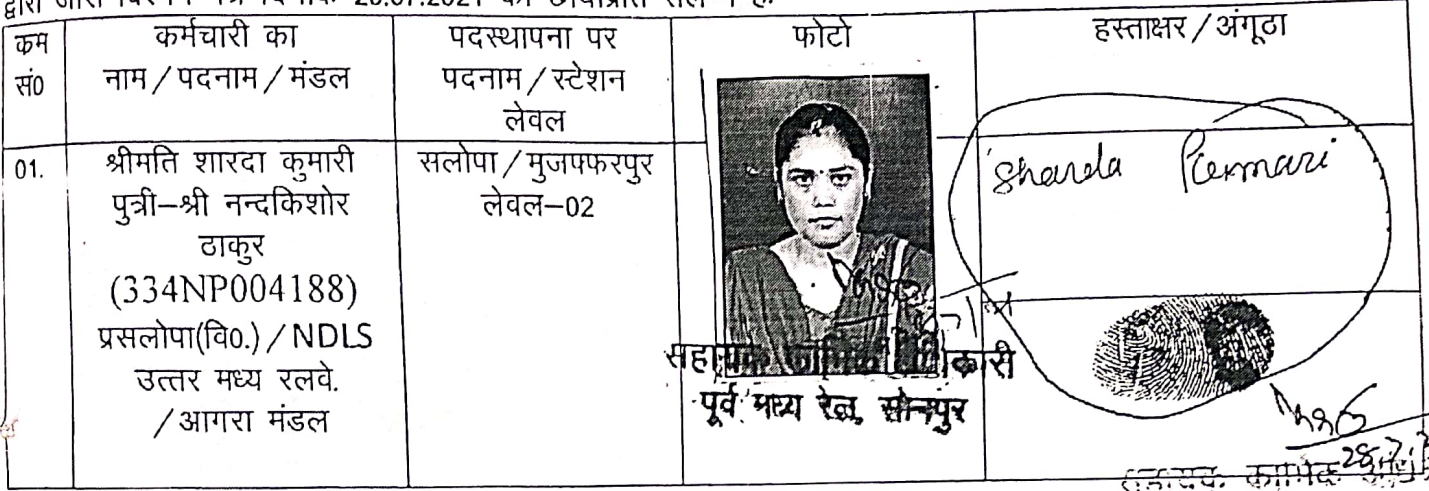 द्वारा जारी
दिनांक 20.07.2021 की छायाप्रति संलग्न है।
कम सं0
कर्मचारी का
नाम/पदनाम/मंडल
पदस्थापना पर
पदनाम/स्टेशन
लेवल
फोटो
हस्ताक्षर/अंगूठा
01.
श्रीमति शारदा कुमारी
पुत्री–श्री नन्दकिशोर
ठाकुर
(334NP004188)
प्रसलोपा(वि0.)/NDLS
उत्तर मध्य रलवे.
/आगरा मंडल
सलोपा/मुजफ्फरपुर
लेवल–02
Sharda Kumari
सहायक कार्मिक अधिकारी
पूर्व मध्य रेल, सोनपुर
सहायक कार्मिक